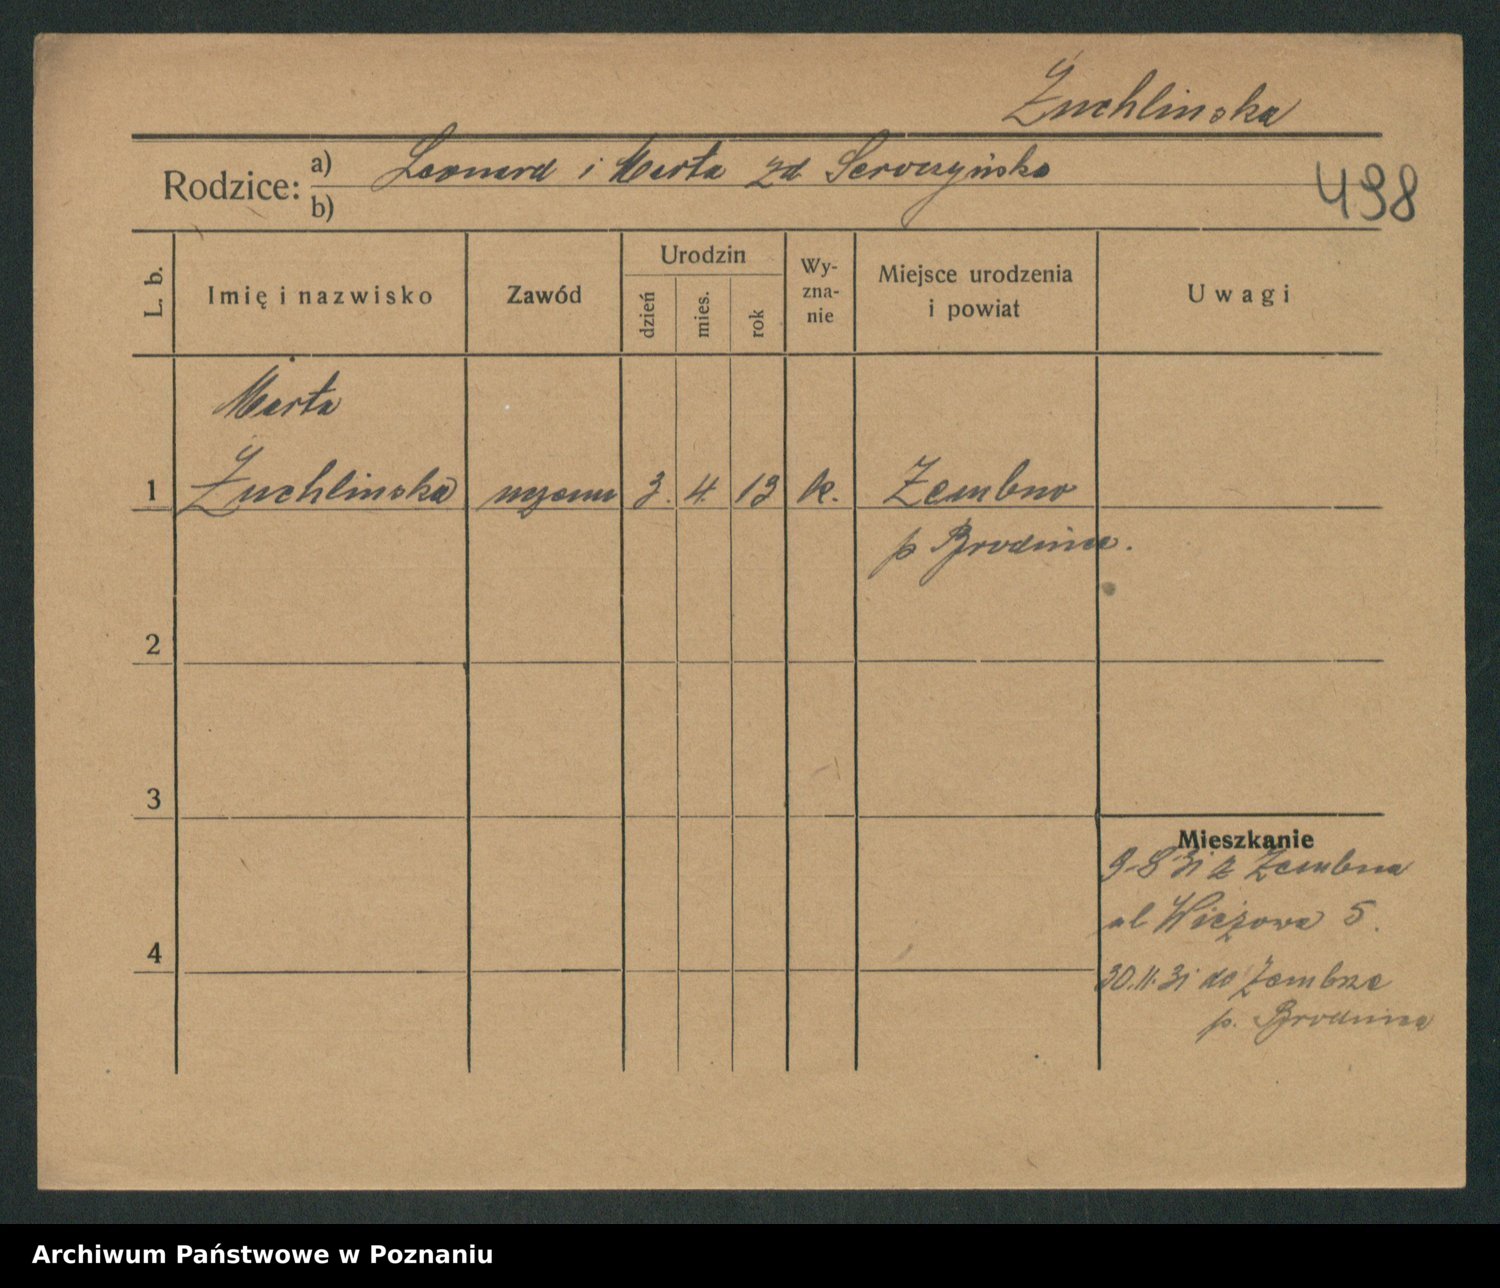 Żuchlinska
Rodzice: a) Leonard i Marta zd. Seroczyńska
b)
498
L. b.
Imię i nazwisko
Zawód
Urodzin
dzień
mies.
rok
Wy-
zna-
nie
Miejsce urodzenia
i powiat
Uwagi
Marta
1 Żuchlinska 3. 4. 13 k. Zembno
p Brodnica.
2
3
4
Mieszkanie
9-8 31 z Zembna
ul Wieżowa 5.
30.11.31 do Zembrze
p. Brodnica
Archiwum Państwowe w Poznaniu